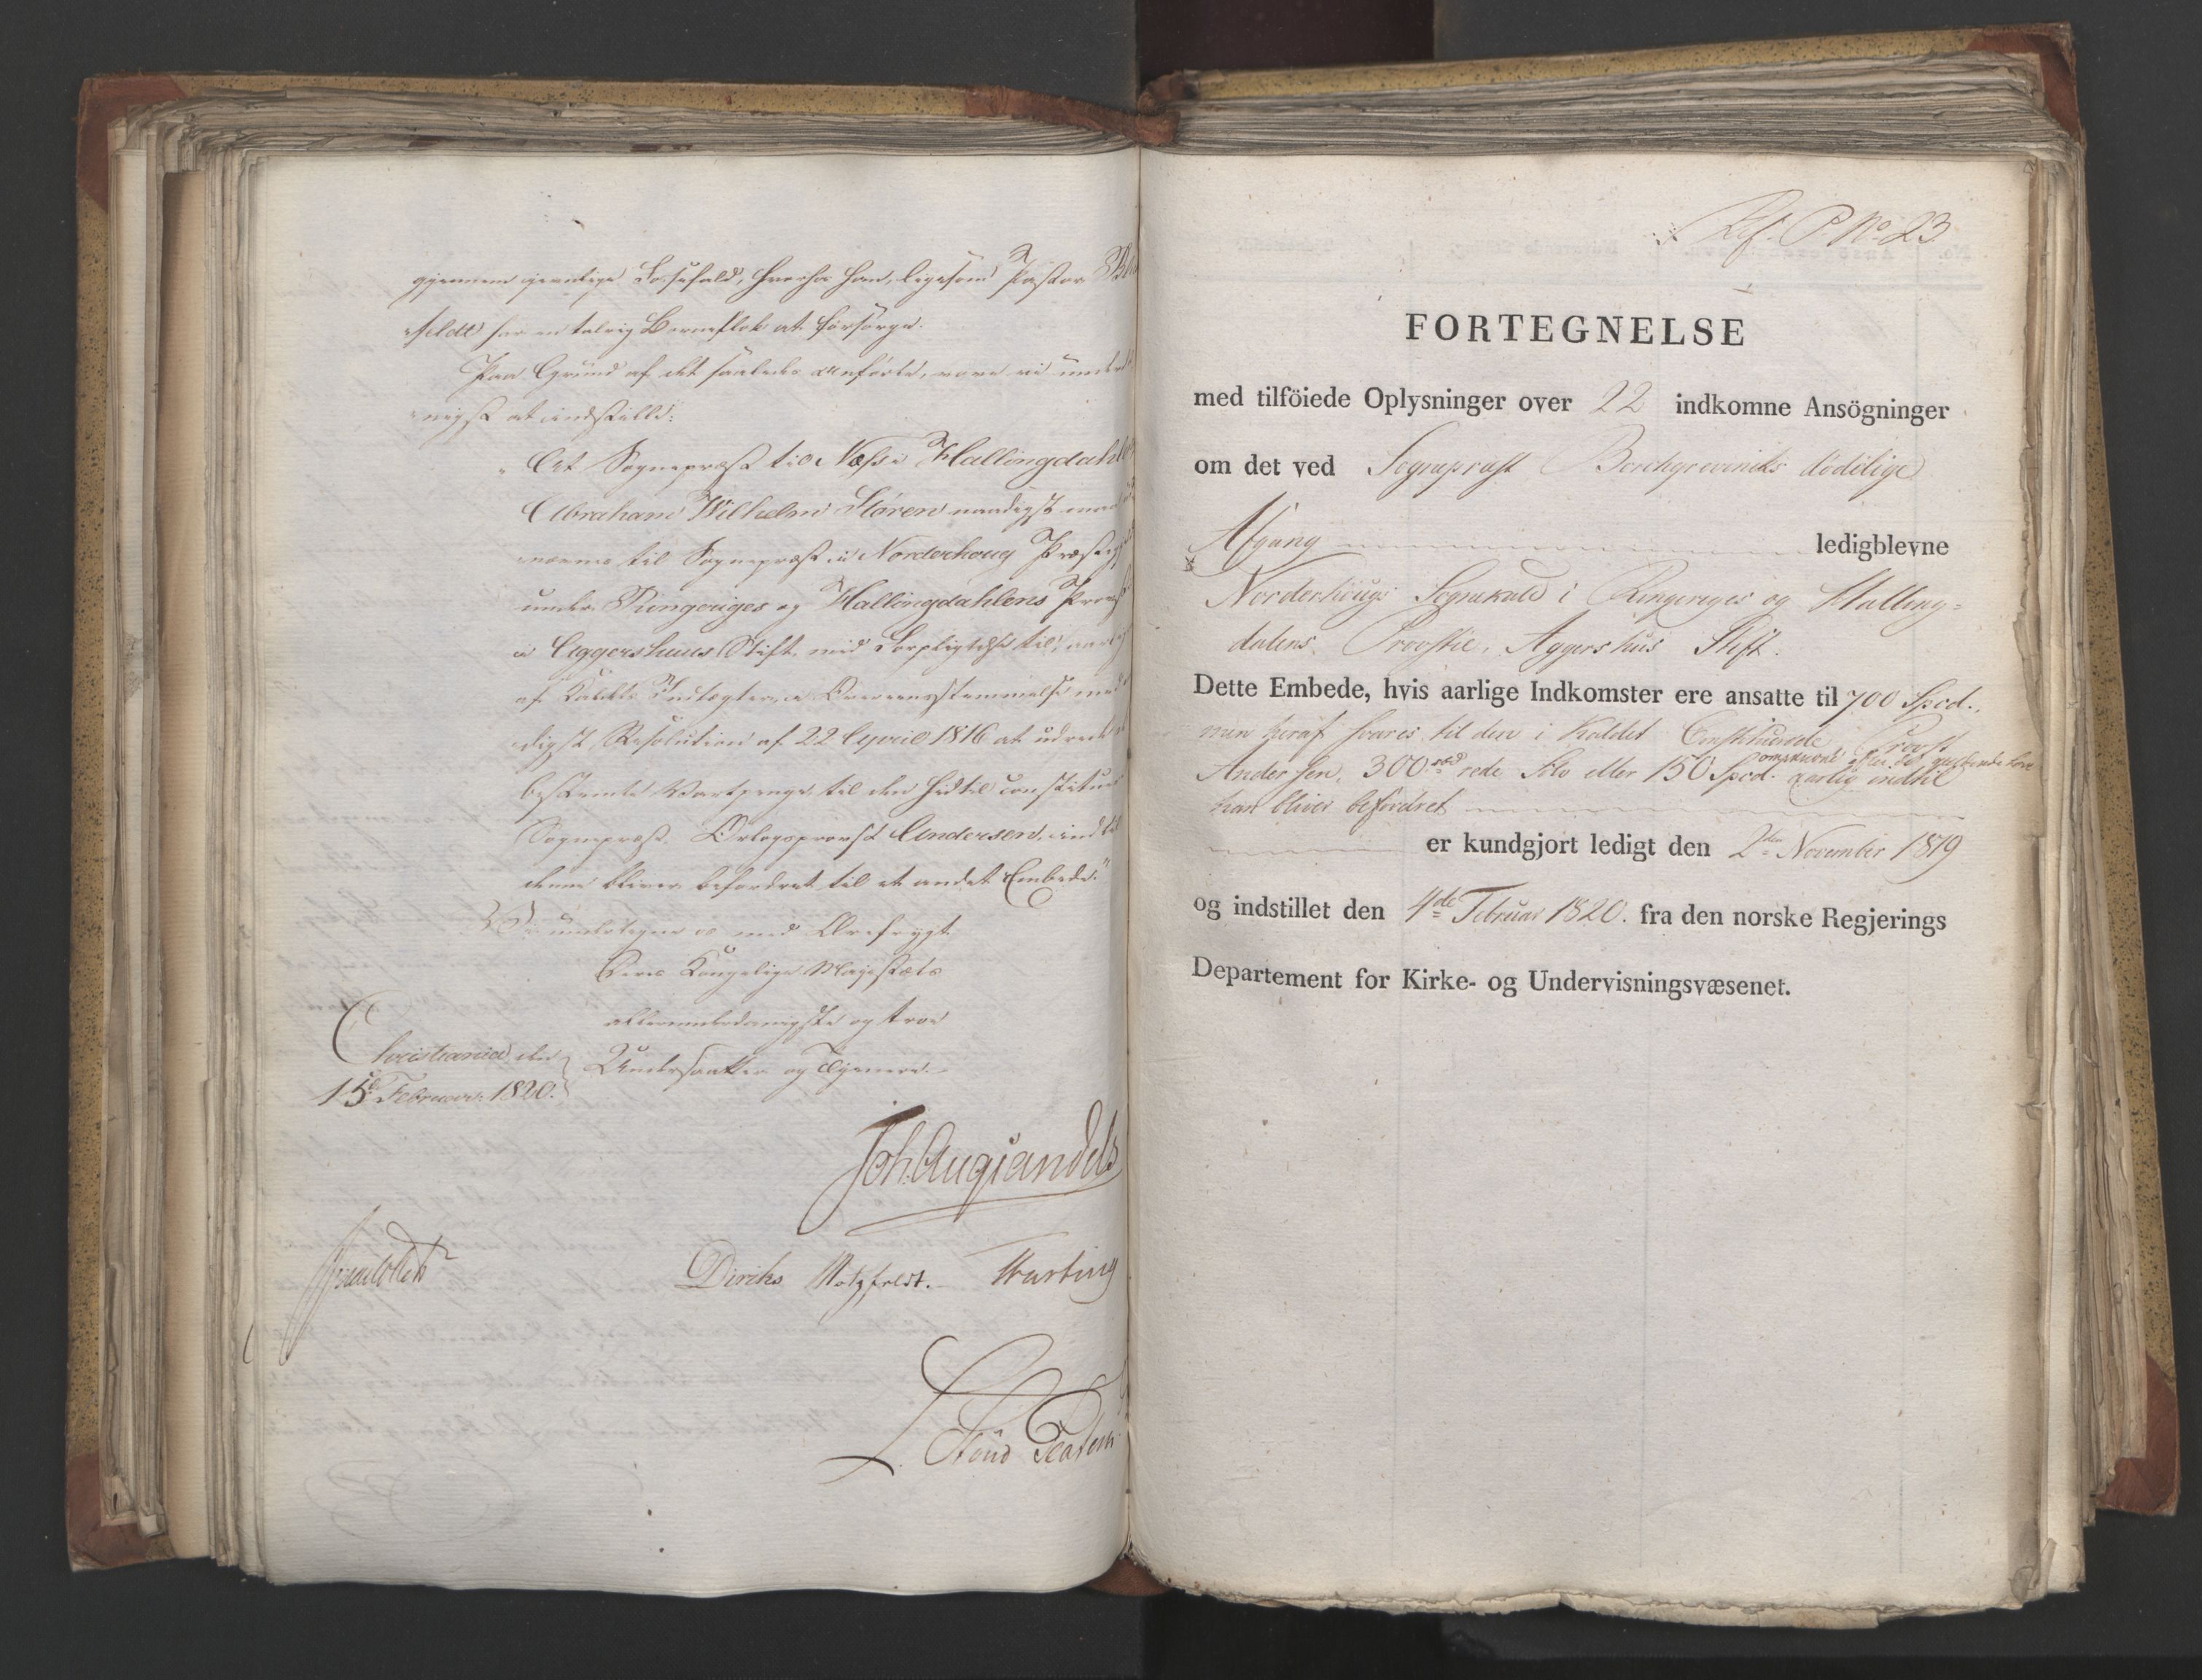 gjennem gjentige Dødsfald, hvorfor han, ligesom Pastor
feldt har en talrig Børneflok at forsørge.
Paa Grund af det saaledes anførte, vove vi under
nigst at indstille:
"At Sognepræst til Næss i Hallingdahl
Abraham Wilhelm Støren naadigst maa
nævnes til Sognepræst i Norderhoug
under Ringeriges og Hallingdahlens
i Aggershuus Stift, med Forpligtelse til,
af Kaldets Indtægter, i Overeensstemmelse med
digst Resolution af 22 April 1816 at udrede
bestemte Vartpenge til den hidtil constitue
Sognepræst Orlogsprovst Andersen, indtil
denne bliver befordret til et andet Embede."
Vi undertegne os med Ærefrygt
Deres Kongelige Majestæts
allerunderdanigste og troe
Undersaatter og Tjenere.
Christiania den
15de Februar 1820.
Joh. Aug. Sandels
Diriks Motzfeldt. Harting
L. Stoud Platou
Ref. P No 23
FORTEGNELSE
med tilföiede Oplysninger over 22 indkomne Ansögninger
om det ved Sognepræst Borchgrevinks dödelige
Afgang ledigblevne
Norderhougs Sognekald i Ringeriges og Halling-
dalens Provstie, Aggershus Stift.
Dette Embede, hvis aarlige Indkomster ere ansatte til 700 Spcd.,
men heraf svares til den i Kaldet Constituerede Provst
Andersen, 300 rede Sölv eller 150 Spcd. aarlig indtil
han bliver befordret
er kundgjort ledigt den 2den November 1819
og indstillet den 4de Februar 1820. fra den norske Regjerings
Departement for Kirke- og Undervisningsvæsenet.